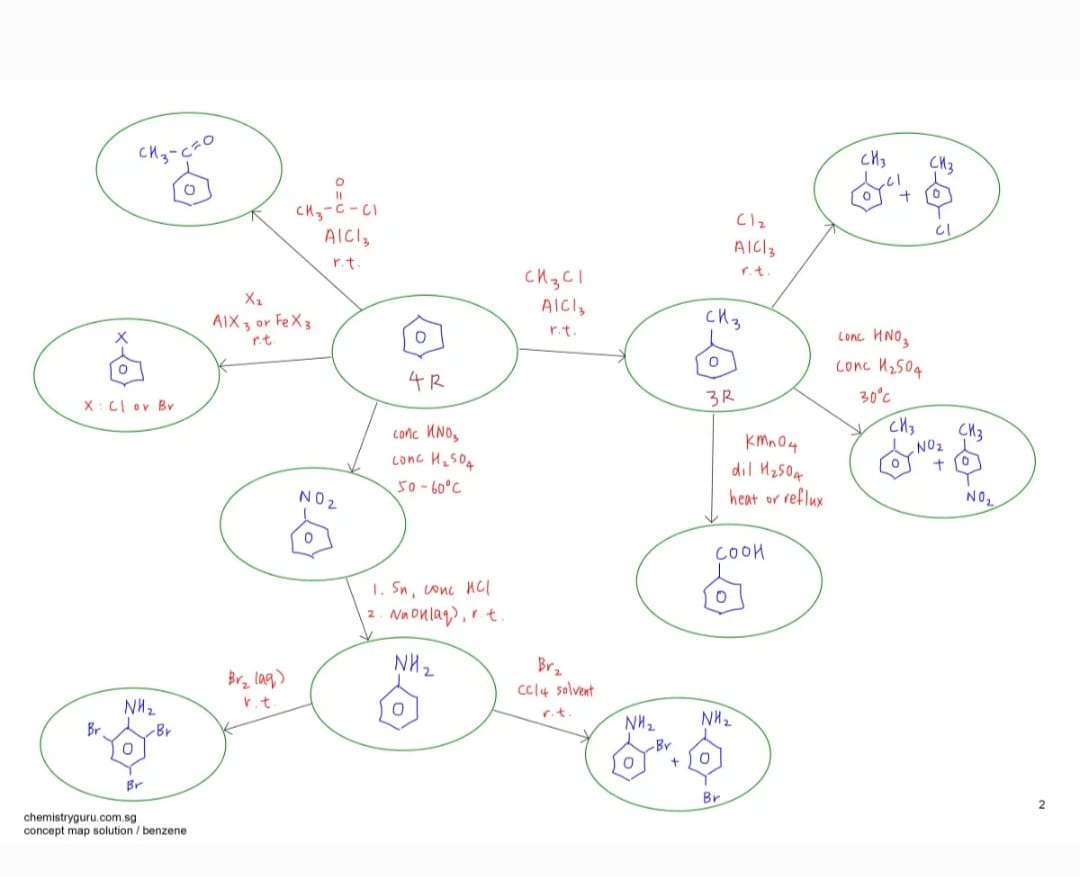 CH3-C=O
O
CH3-C-Cl
AlCl3
r.t.
X2
AlX3 or FeX3
r.t.
X
X : Cl or Br
4R
CH3Cl
AlCl3
r.t.
CH3
3R
Cl2
AlCl3
r.t.
CH3
Cl
+
CH3
Cl
conc HNO3
conc H2SO4
30°C
CH3
NO2
+
CH3
NO2
KMnO4
dil H2SO4
heat or reflux
COOH
conc HNO3
conc H2SO4
50-60°C
NO2
1. Sn, conc HCl
2. NaOH(aq), r.t.
NH2
Br2 (aq)
r.t.
NH2
Br
Br
Br
Br2
CCl4 solvent
r.t.
NH2
Br
+
NH2
Br
chemistryguru.com.sg
concept map solution / benzene
2